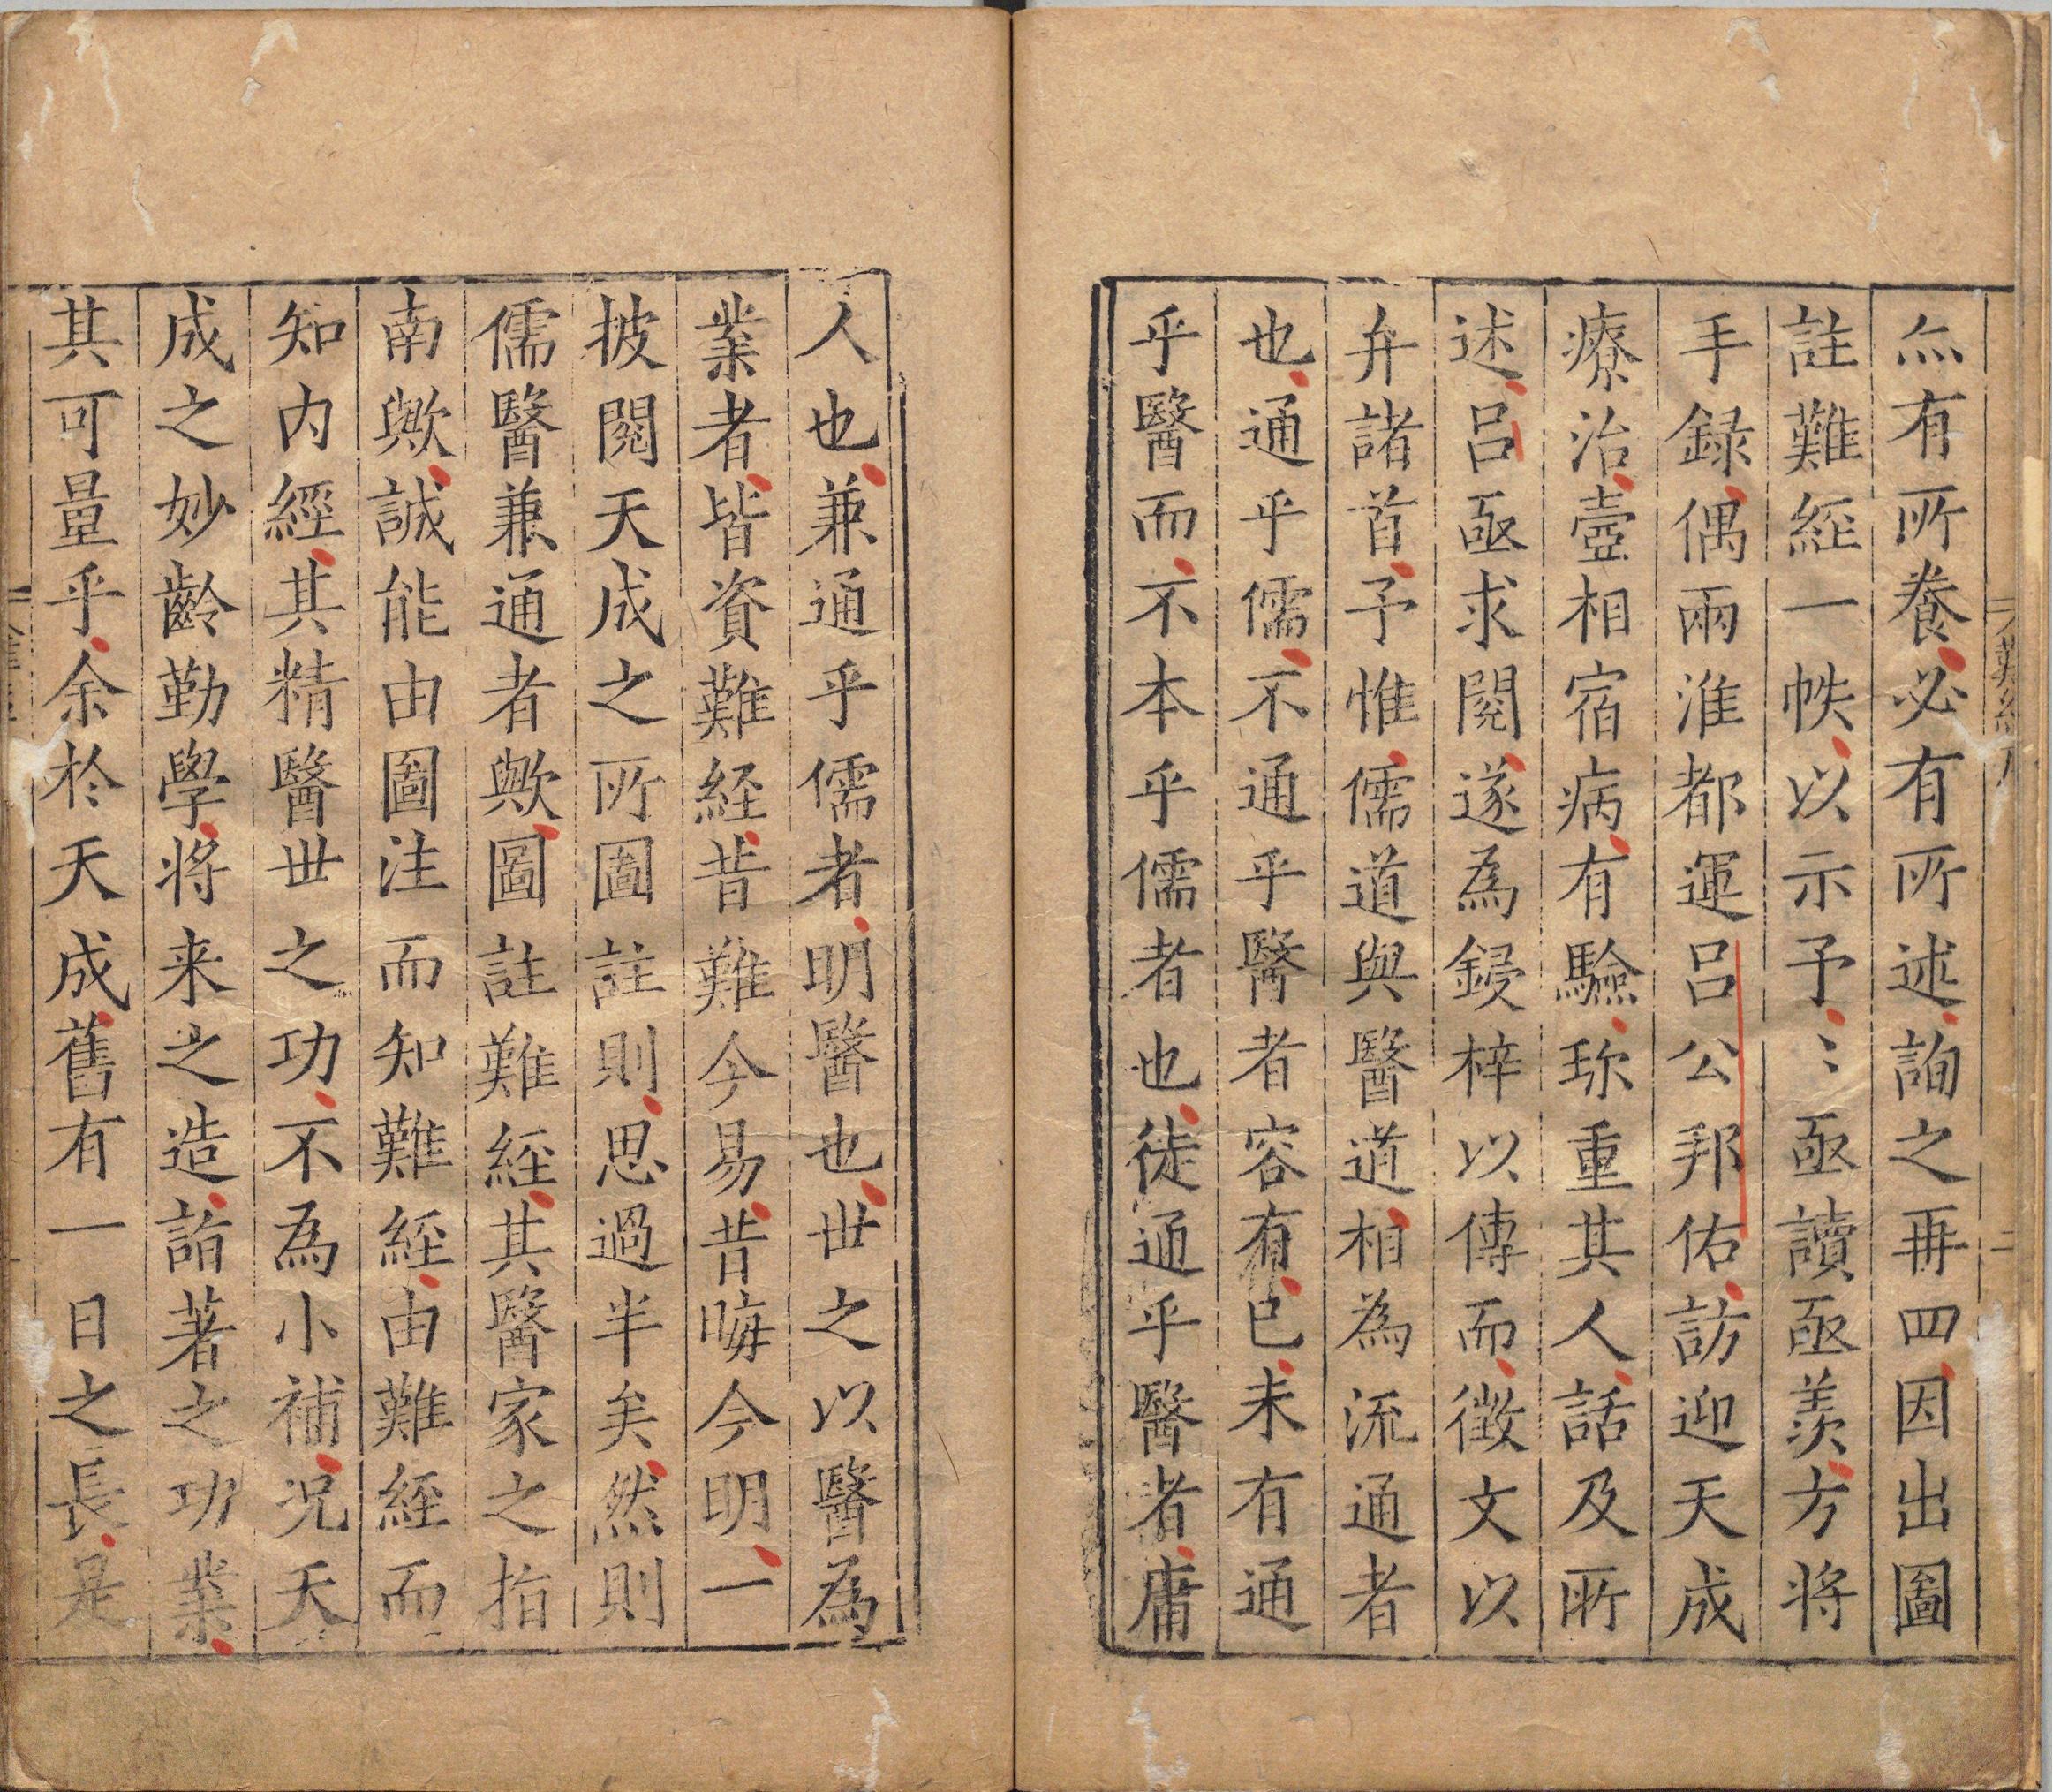 亦有所養必有所述詢之再四因出圖
註難經一帙以示予〻亟讀亟羨方將
手録偶兩淮都運吕公邦佑訪迎天成
療治壼相宿病有驗珎重其人話及所
述吕亟求閱遂為鋟梓以傳而徴文以
弁諸首予惟儒道與醫道相為流通者
也通乎儒不通乎醫者容有已未有通
乎醫而不本乎儒者也徒通乎醫者庸
人也兼通乎儒者明醫也世之以醫為
業者皆資難経昔難今易昔晦今明一
披閱天成之所圖註則思過半矣然則
儒醫兼通者歟圖註難經其醫家之指
南歟誠能由圖注而知難經由難經而
知内經其精醫世之功不為小補况天
成之妙齡勤學將来之造詣著之功業
其可量乎余於天成舊有一日之長是